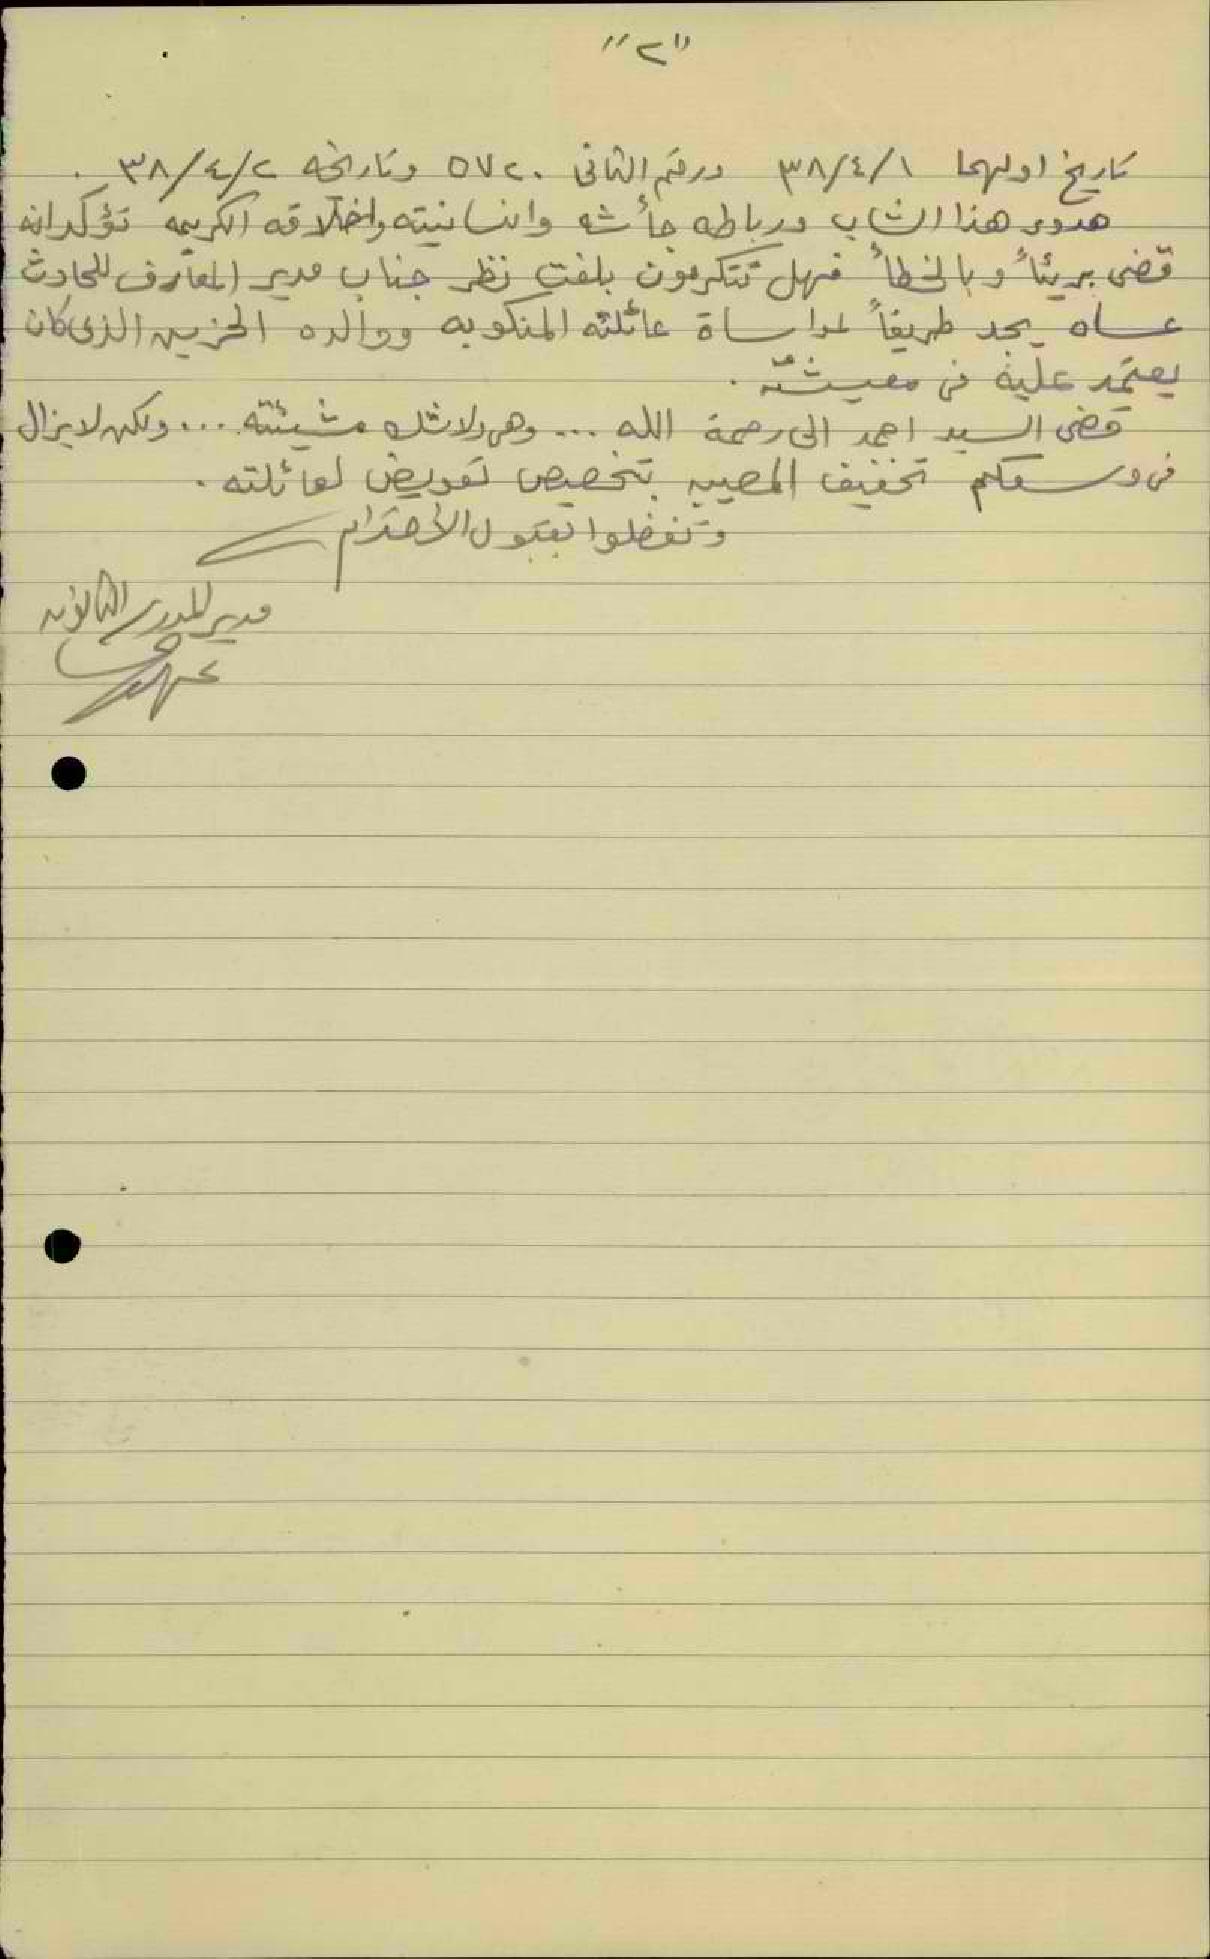 "٢"
تاريخ اولهما ٣٨/٤/١ ورقم الثاني ٥٧٢٠ وتاريخه ٣٨/٤/٢ .
هدوء هذا الشاب ورباطه جأشه وانسانيته واخلاقه الكريمه تؤكد انه
قضى بريئاً وبالخطأ فهل تتكرمون بلفت نظر جناب مدير المعارف للحادث
عساه يجد طريقاً لمواساة عائلته المنكوبه ووالده الحزين الذي كان
يعتمد عليه في معيشته .
قضى السيد احمد الى رحمة الله ... وهي ولا شك مشيئته ... ولكن لا يزال
في وسعكم تخفيف المصيبه بتخصيص تعويض لعائلته .
وتفضلوا بقبول الاحترام
مدير المدرسة الثانويه